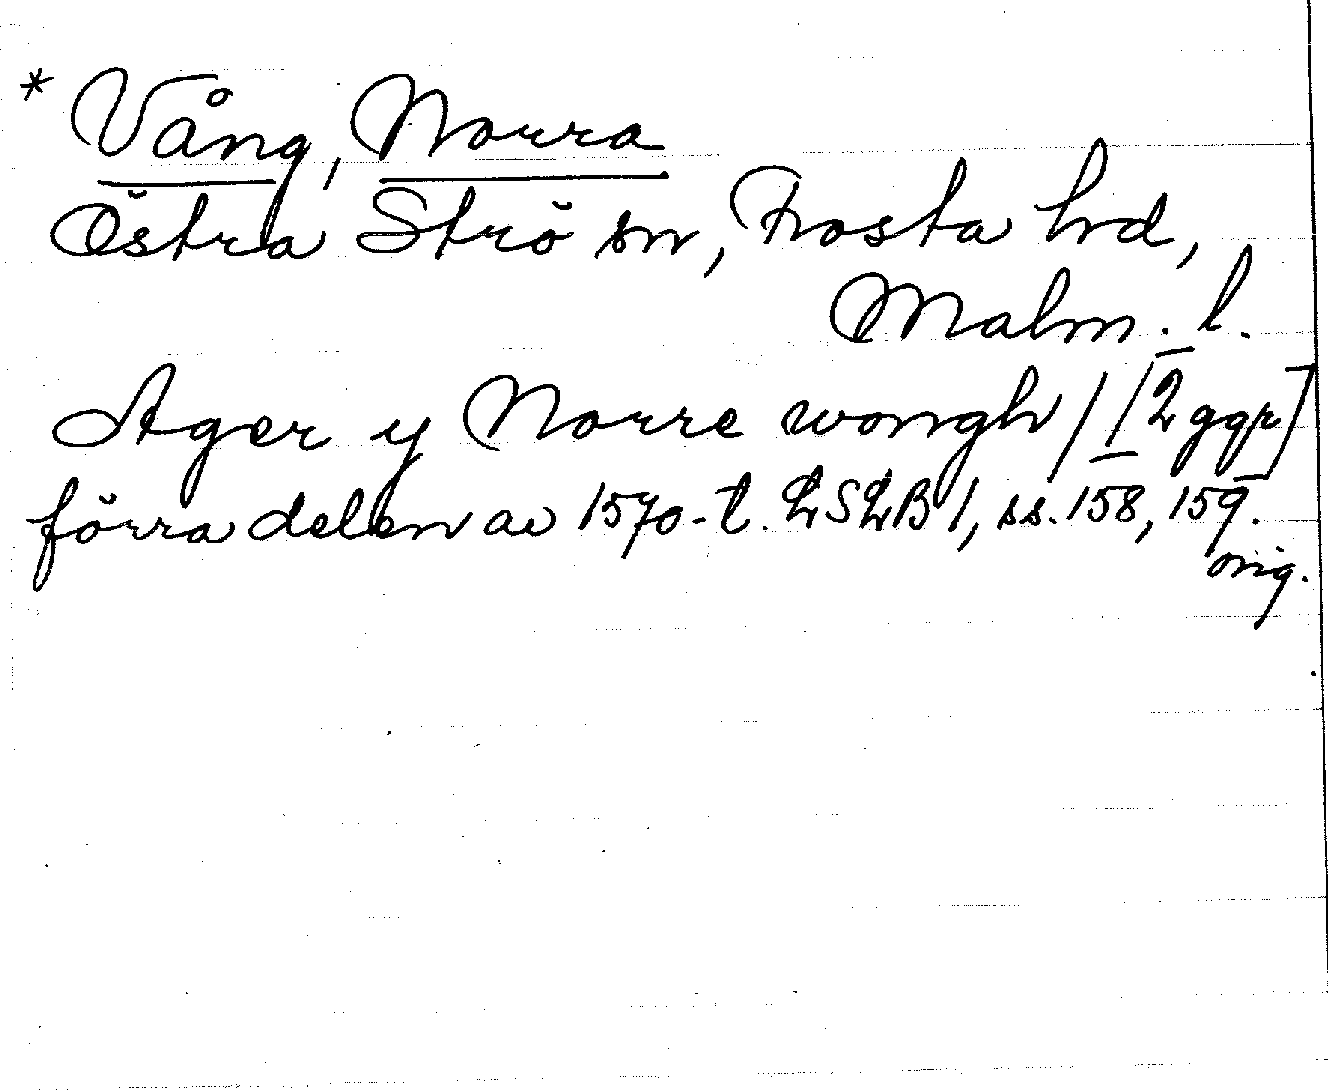 * Vång, Norra
Östra Strö sn, Frosta hd,
Malm. l.
Ager y Norre wongh / [2 ggr]
förra delen av 1570-t. LSLB 1, ss. 158, 159.
orig.